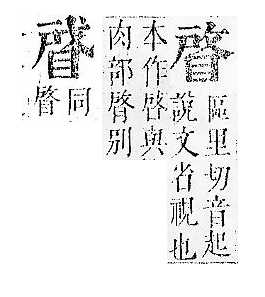 䁈
區里切音起
說文省視也
本作
與
肉部䏿別
同
䁈